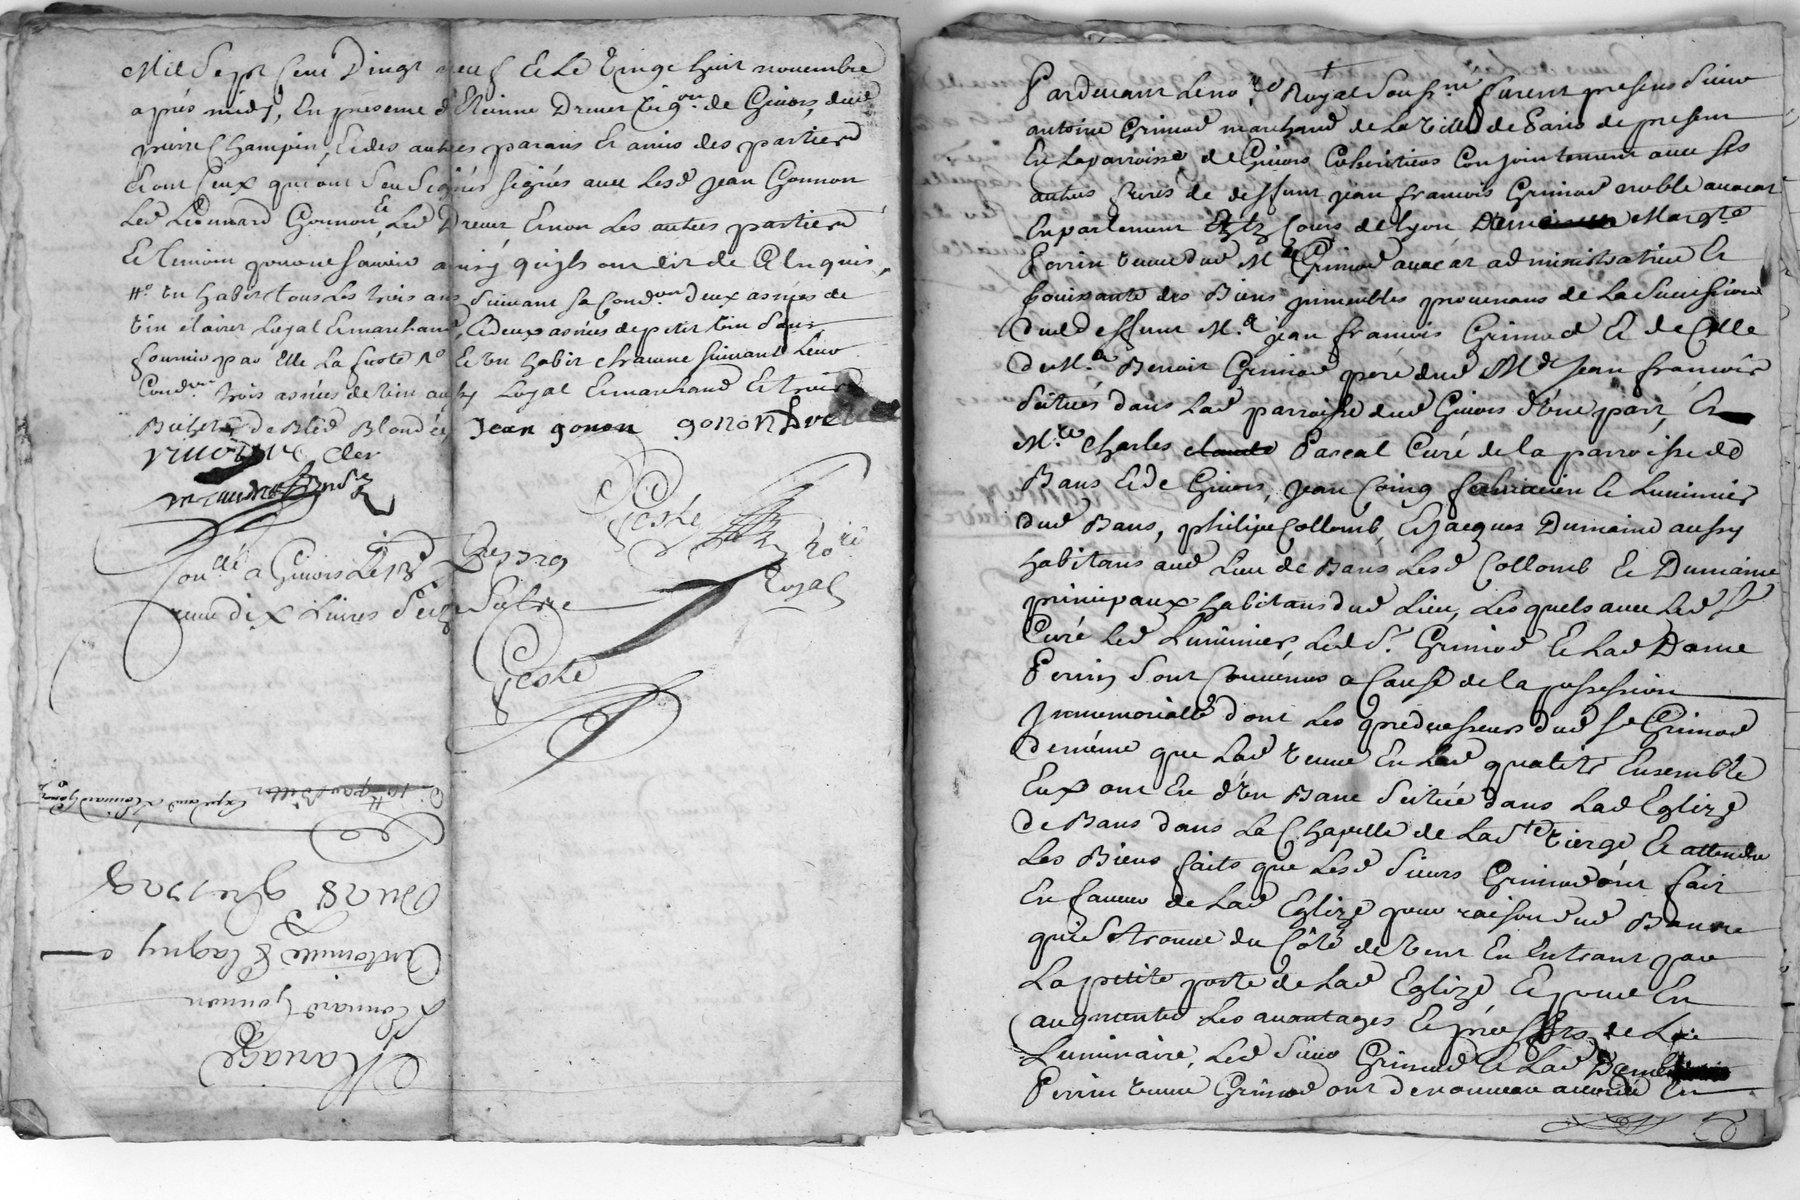 Mil Sept Cent Vingt neuf Et Le Vingt huit novembre
apres midy, En presence d'Etienne Dreuet vig.on de Givors, dud
pierre Champin, Et des autres parans Et amis des parties
Et ont Ceux qui ont Seu Signés signés avec Lesd Jean Gonnon
Led Leonnard Gonnon, Led Dreuet Et non Les autres parties
Et temoin pour ne sçavoir ainsy qu'ils ont dit de Ce Enquis,
Un habit tous Les trois ans Suivant Sa Cond.on deux asnées de
vin clairet Loyal Et marchand, Et deux asnées de petit vin Sans
fournir par Elle La futte Et Un habit chacune suivant Leur
Cond.on trois asnées de vin aussy Loyal Et marchand Et trois
Bichets de Bled Blondée Jean gonon gonon Dre
Geste
no.re
Royal
Con.llé a Givors Le 13 Xbre 1729
reçu dix Livres Seize
Geste
Expedié a Leonnard Gonon
Du 28 9bre 1729
Antoinette Flagny
Leonnard Gonnon
Mariage
Pardevant Le no.re Royal Soussigné furent presens Sieur
antoine Grimod marchand de La Ville de Paris de present
En La parroisse de Givors Coheritiers Conjointement avec Ses
autres freres de deffunt Jean francois Grimod noble avocat
En parlement Et Ez Cours de Lyon Marg.te
Perrin veuve dud M.e Grimod avocat administratrice Et
Jouissante des Biens jmmeubles provenans de La Succession
dud deffunt M.e Jean francois Grimod Et de Celle
de M.e Benoit Grimod pere dud M.e Jean francois
Scitués dans Lad parroisse dud Givors d'Une part, Et
M.re Charles claude Pascal Curé de la parroisse de
Bans Et de Givors, Jean Coing fabricien Et Luminier
dud Bans, philipe Collomb, Et Jacques Dumaine aussy
habitans aud Lieu de Bans Lesd Collomb Et Dumaine
principaux habitans dud Lieu, Lesquels avec Led S.r
Curé Led Luminier, Led S.r Grimod Et Lad Dame
Perrin Sont Convenus a Cause de la possession
Jmmemorialle dont Les predecesseurs dud S.r Grimod
de même que Lad veuve En Lad qualité Ensemble
Eux ont Eu d'Un Banc Scitué dans Lad Eglize
de Bans dans La Chapelle de La S.te Vierge Et attendu
Les Biens faits que Lesd Sieurs Grimod ont fait
En faveur de Lad Eglize pour raison dud Banc
qui Se trouve du Côté de vent En Entrant par
La petite porte de Lad Eglize, Et pour En
augmenter Les avantages Et proffits de La
Luminaire, Led Sieur Grimod Et Lad
Perrin veuve Grimod ont de nouveau accordé En